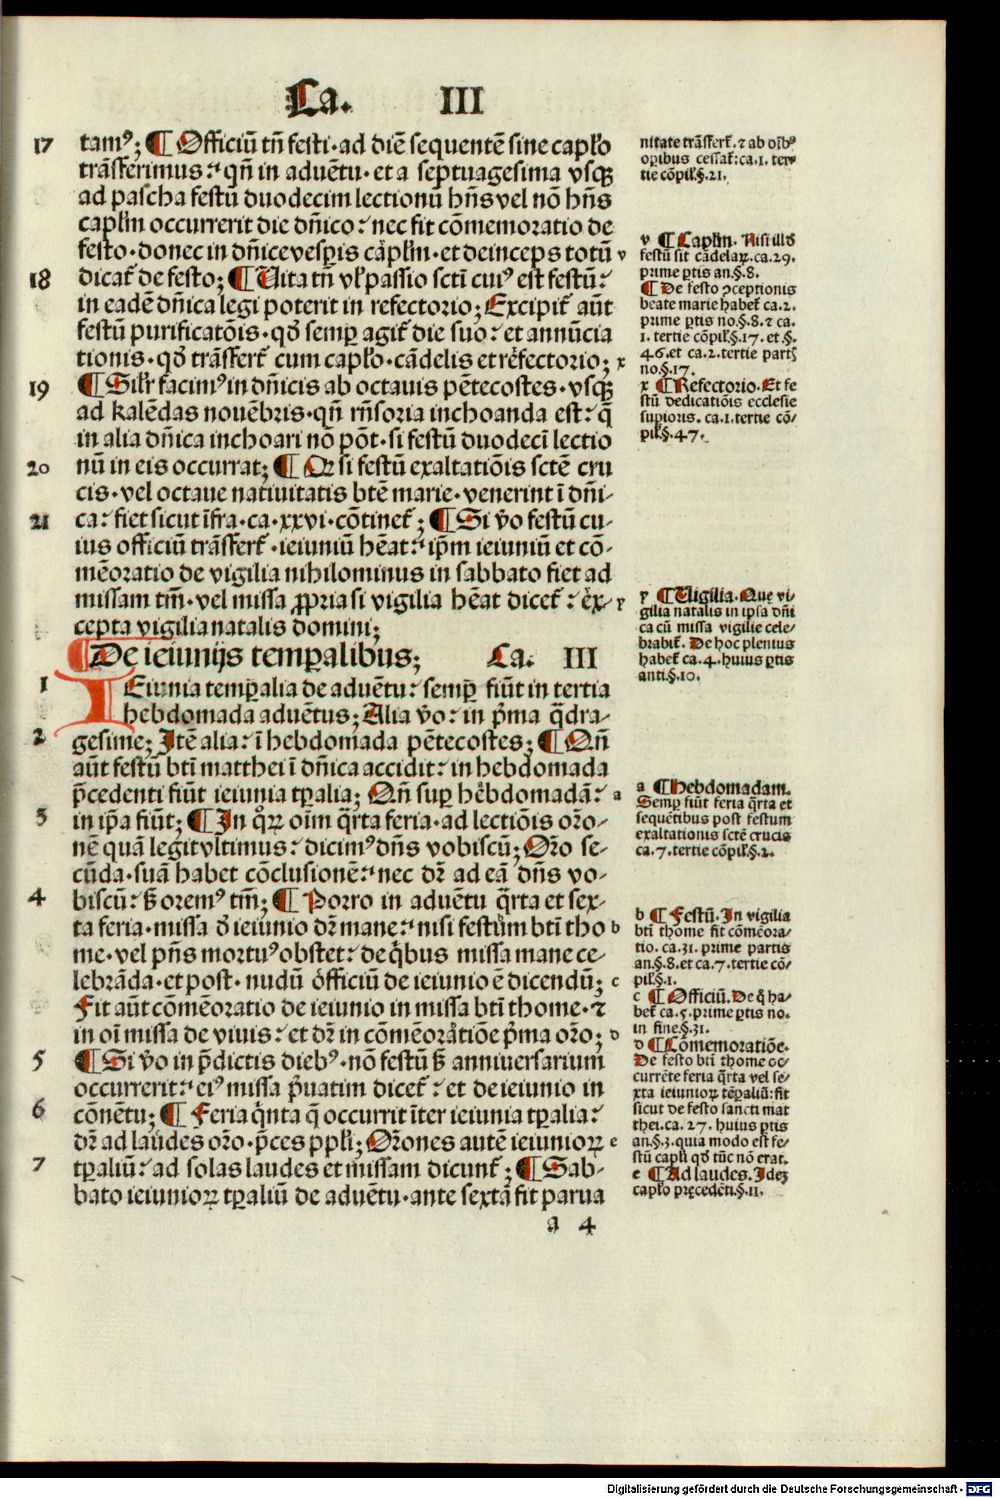 Ca. III
17 tamꝰ; ¶ Officiū tñ festi·ad diē sequentē sine capl̓o
trāsferimus: qñ in aduētu·et a septuagesima vsqꝫ
ad pascha festū duodecim lectionū hñs vel nō hñs
capl̓m occurrerit die dñico: nec fit cōmemoratio de
festo·donec in dñice vesperis cap̄lm·et deinceps totū v
18 dicat᷑ de festo; ¶ Uita tñ vl̓ passio scti cuiꝰ est festū:
in eadē dñica legi poterit in refectorio; Excipit᷑ aūt
festū purificatōis·qđ semꝑ agit᷑ die suo: et annūcia
tionis·qđ trāsfert᷑ cum capl̓o·cādelis et refectorio; x
19 ¶ Silr̓ facimꝰ in dñicis ab octauis pētecostes·vsqꝫ
ad kalēdas nouēbris·qñ rñsoria inchoanda est: q̄
in alia dñica inchoari nō pōt·si festū duodecī lectio
20 nū in eis occurrat; ¶ Qꝛ si festū exaltatiōis sctē cru
cis·vel octaue natiuitatis btē marie·venerint ī dñi-
21 ca: fiet sicut īfra·ca·xxvi·cōtinet᷑; ¶ Si v̓o festū cu-
ius officiū trāsfert᷑·ieiuniū hēat: ip̄m ieiuniū et cō-
mēoratio de vigilia nihilominus in sabbato fiet ad
missam tm̄·vel missa ꝓpria si vigilia hēat dicet᷑: ex- y
cepta vigilia natalis domini;
¶ De ieiunijs temꝑalibus; Ca. III
1 IEiunia temꝑalia de aduētu: semꝑ fiūt in tertia
hebdomada aduētus; Alia v̓o: in p̄ma q̄dra-
2 gesime; Itē alia: ī hebdomada pētecostes; ¶ Qñ
aūt festū btī matthei ī dñica accidit: in hebdomada
p̄cedenti fiūt ieiunia tꝑalia; Qñ suꝑ hebdomadā: a
3 in ip̄a fiūt; ¶ In qꝛꝝ oīm q̄rta feria·ad lectiōis oro-
nē quā legit vltimus: dicimꝰ dñs vobiscū; Oro se-
cūda·suā habet cōclusionē: nec dr̄ ad eā dñs vo-
4 biscū: sꝫ oremꝰ tm̄; ¶ Porro in aduētu q̄rta et sex-
ta feria·missa đ ieiunio dr̄ mane: nisi festum btī tho b
me·vel pñs mortuꝰ obstet: de q̄bus missa mane ce-
lebrāda·et post·nudū officiū de ieiunio ē dicendū; c
Fit aūt cōmēoratio de ieiunio in missa btī thome·⁊
in oī missa de viuis: et dr̄ in cōmēoratiōe p̄ma oro; d
5 ¶ Si v̓o in p̄dictis diebꝰ·nō festū sꝫ anniuersarium
occurrerit: eiꝰ missa p̄uatim dicet᷑: et de ieiunio in
6 cōnētu; ¶ Feria q̄nta q̄ occurrit īter ieiunia tꝑalia:
dr̄ ad laudes oro·p̄ces ppl̓i; Orones autē ieiunioꝝ e
7 tꝑaliū: ad solas laudes et missam dicunt᷑; ¶ Sab-
bato ieiunioꝝ tꝑaliū de aduētu·ante sextā fit parua
a 4
nitate trāsfert᷑·⁊ ab oībꝰ
oꝑibus cessat᷑: ca.1. ter-
tie cōpil̓.§.21.
v ¶ Capl̓m. Nisi illđ
festū sit cādelaꝝ. ca.29.
prime ꝑtis an.§.8.
¶ De festo ꝯceptionis
beate marie habet᷑ ca.2.
prime ꝑtis no.§.8. ⁊ ca.
1. tertie cōpil̓.§.17. et §.
46. et ca.2. tertie partꝭ
no.§.17.
x ¶ Refectorio. Et fe
stū dedicatiōis ecclesie
supioris. ca.1. tertie cō-
pil̓.§.47.
y ¶ Uigilia. Que vi-
gilia natalis in ipsa dñi
ca cū missa vigilie cele-
brabit᷑. De hoc plenius
habet᷑ ca.4. huius ꝑtis
anti.§.10.
a ¶ Hebdomadam.
Semꝑ fiūt feria q̄rta et
sequētibus post festum
exaltationis sctē crucis
ca.7. tertie cōpil̓.§.2.
b ¶ Festū. In vigilia
btī thome fit cōmēora-
tio. ca.31. prime partis
an.§.8. et ca.7. tertie cō-
pil̓.§.1.
c ¶ Officiū. De q̄ ha-
bet᷑ ca.5. prime ꝑtis no.
in fine.§.31.
d ¶ Cōmemoratiōe.
De festo btī thome oc-
currēte feria q̄rta vel se-
xta ieiunioꝝ tēꝑaliū: fit
sicut de festo sancti mat
thei. ca.27. huius ꝑtis
an.§.3. quia modo est fe-
stū capl̓i qđ tūc nō erat.
e ¶ Ad laudes. Ideꝫ
capl̓o precedēti.§.11.
Digitalisierung gefördert durch die Deutsche Forschungsgemeinschaft - DFG